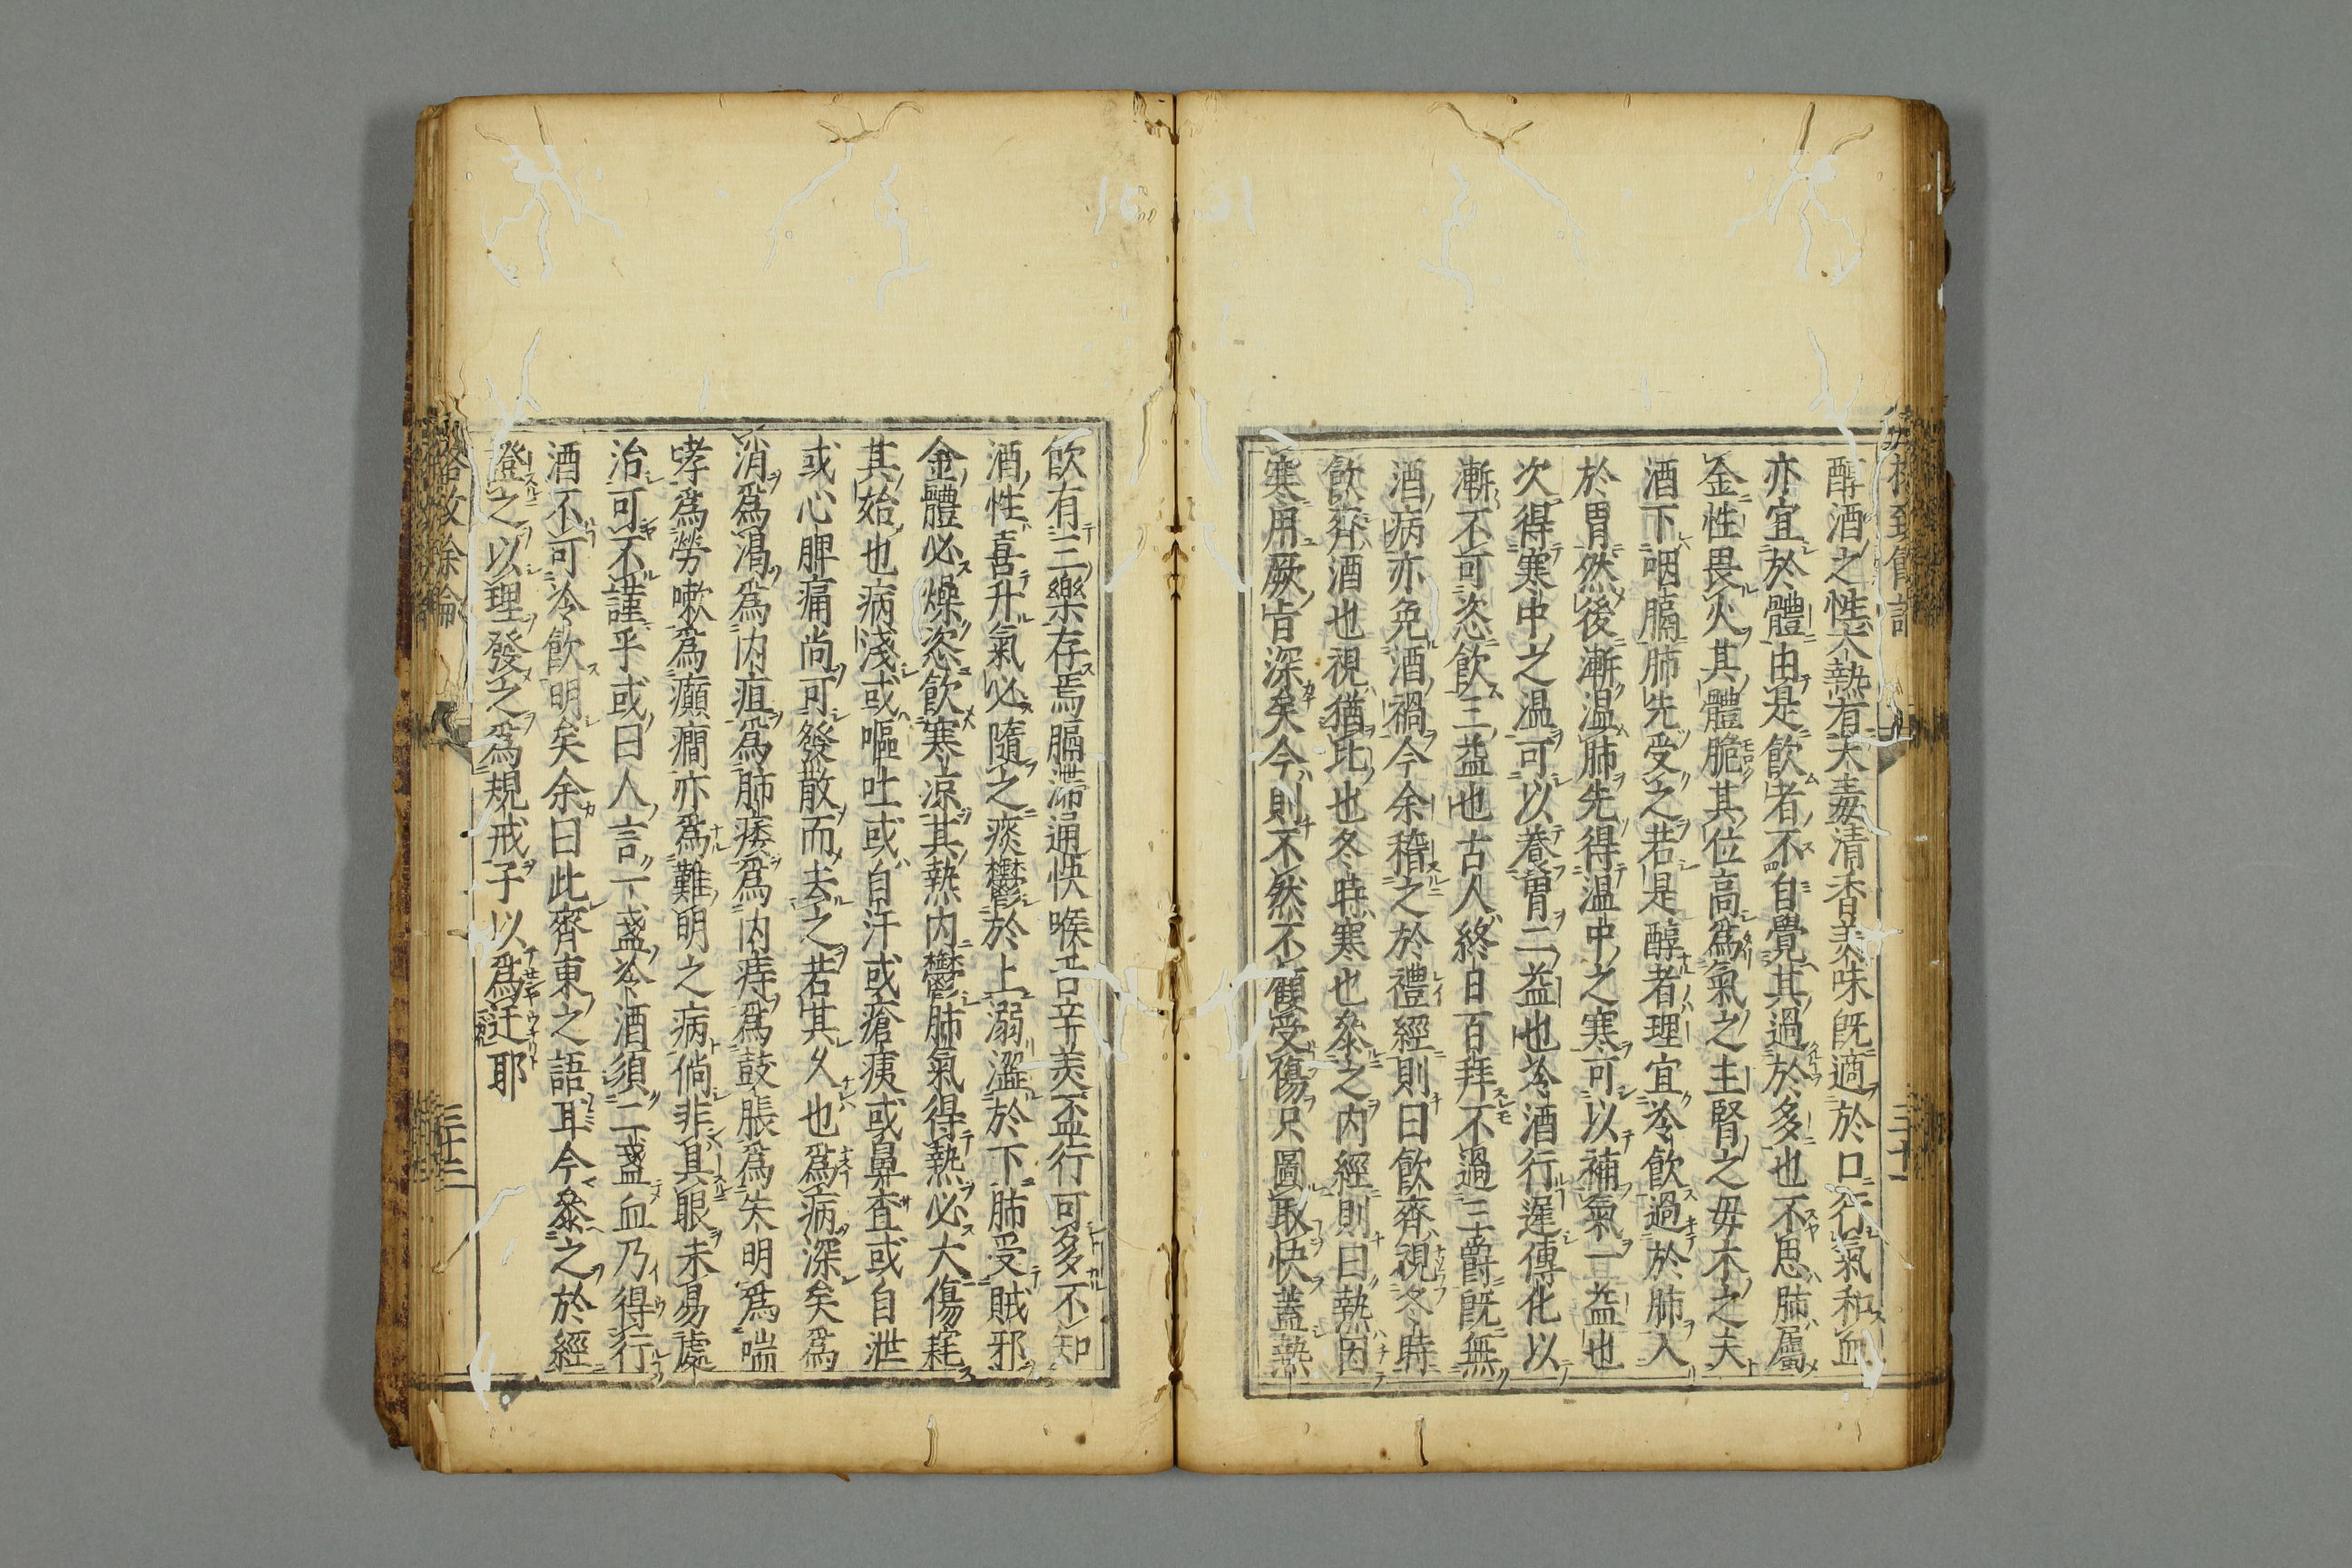 醇酒之性大熱有大毒清香美味旣適於口行氣和血
亦宜於體由是飮者不自覺其過於多也不思肺屬
金性畏火其體脆其位高爲氣之主腎之毋木之夫
酒下咽膈肺先受之若是醇者理宜冷飮過於肺入
於胃然後漸温肺先得温中之寒可以補氣一益也
次得寒中之温可以養胃二益也冷酒行遲傳化以
漸不可恣飮三益也古人終日百拜不過三爵旣無
酒病亦免酒禍今余稽之於禮經則曰飮齊視冬時
飮齊酒也視猶比也冬時寒也叅之内經則曰熱因
寒用厥㫖深矣今則不然不顧受傷只圖取快蓋熱
飮有三樂存焉膈滯通快喉舌辛美盃行可多不知
酒性喜升氣必隨之痰鬱於上溺澀於下肺受賊邪
金體必燥恣飮寒凉其熱内鬱肺氣得熱必大傷耗
其始也病淺或嘔吐或自汗或瘡痍或鼻査或自泄
或心脾痛尚可發散而去之若其久也爲病深矣爲
消爲渴爲内疽爲肺痿爲内痔爲鼓脹爲失明爲喘
哮爲勞嗽爲癲癇亦爲難明之病倘非具眼未易處
治可不謹乎或曰人言一盞冷酒須二盞血乃得行
酒不可冷飮明矣余曰此齊東之語耳今叅之於經
證之以理發之爲規戒子以爲迂耶
格致餘論
三十二